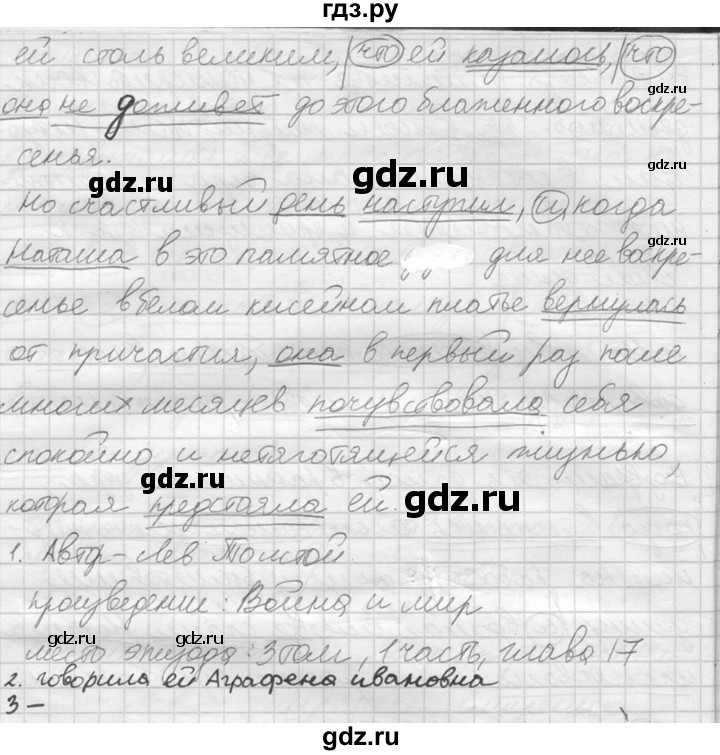 гдз.ру
ей столь великим, что ей казалось, что
она не доживет до этого блаженного воскре-
сенья.
gdz.ru
gdz.ru
gdz.ru
gdz.ru
Но счастливый день наступил, и когда
gdz.ru
Наташа в это памятное для нее воскре-
сенье в белом кисейном платье вернулась
gdz.ru
от причастия, она в первый раз после
многих месяцев почувствовала себя
спокойно и нетяготящейся жизнью,
gdz.ru
gdz.ru
которая предстояла ей.
1. Автр - Лев Толстой
произведение: Война и мир
gdz.ru
gdz.ru
gdz.ru
место эпизода: 3 том, 1 часть, глава 17
2. говорила ей Аграфена ивановна
3 -